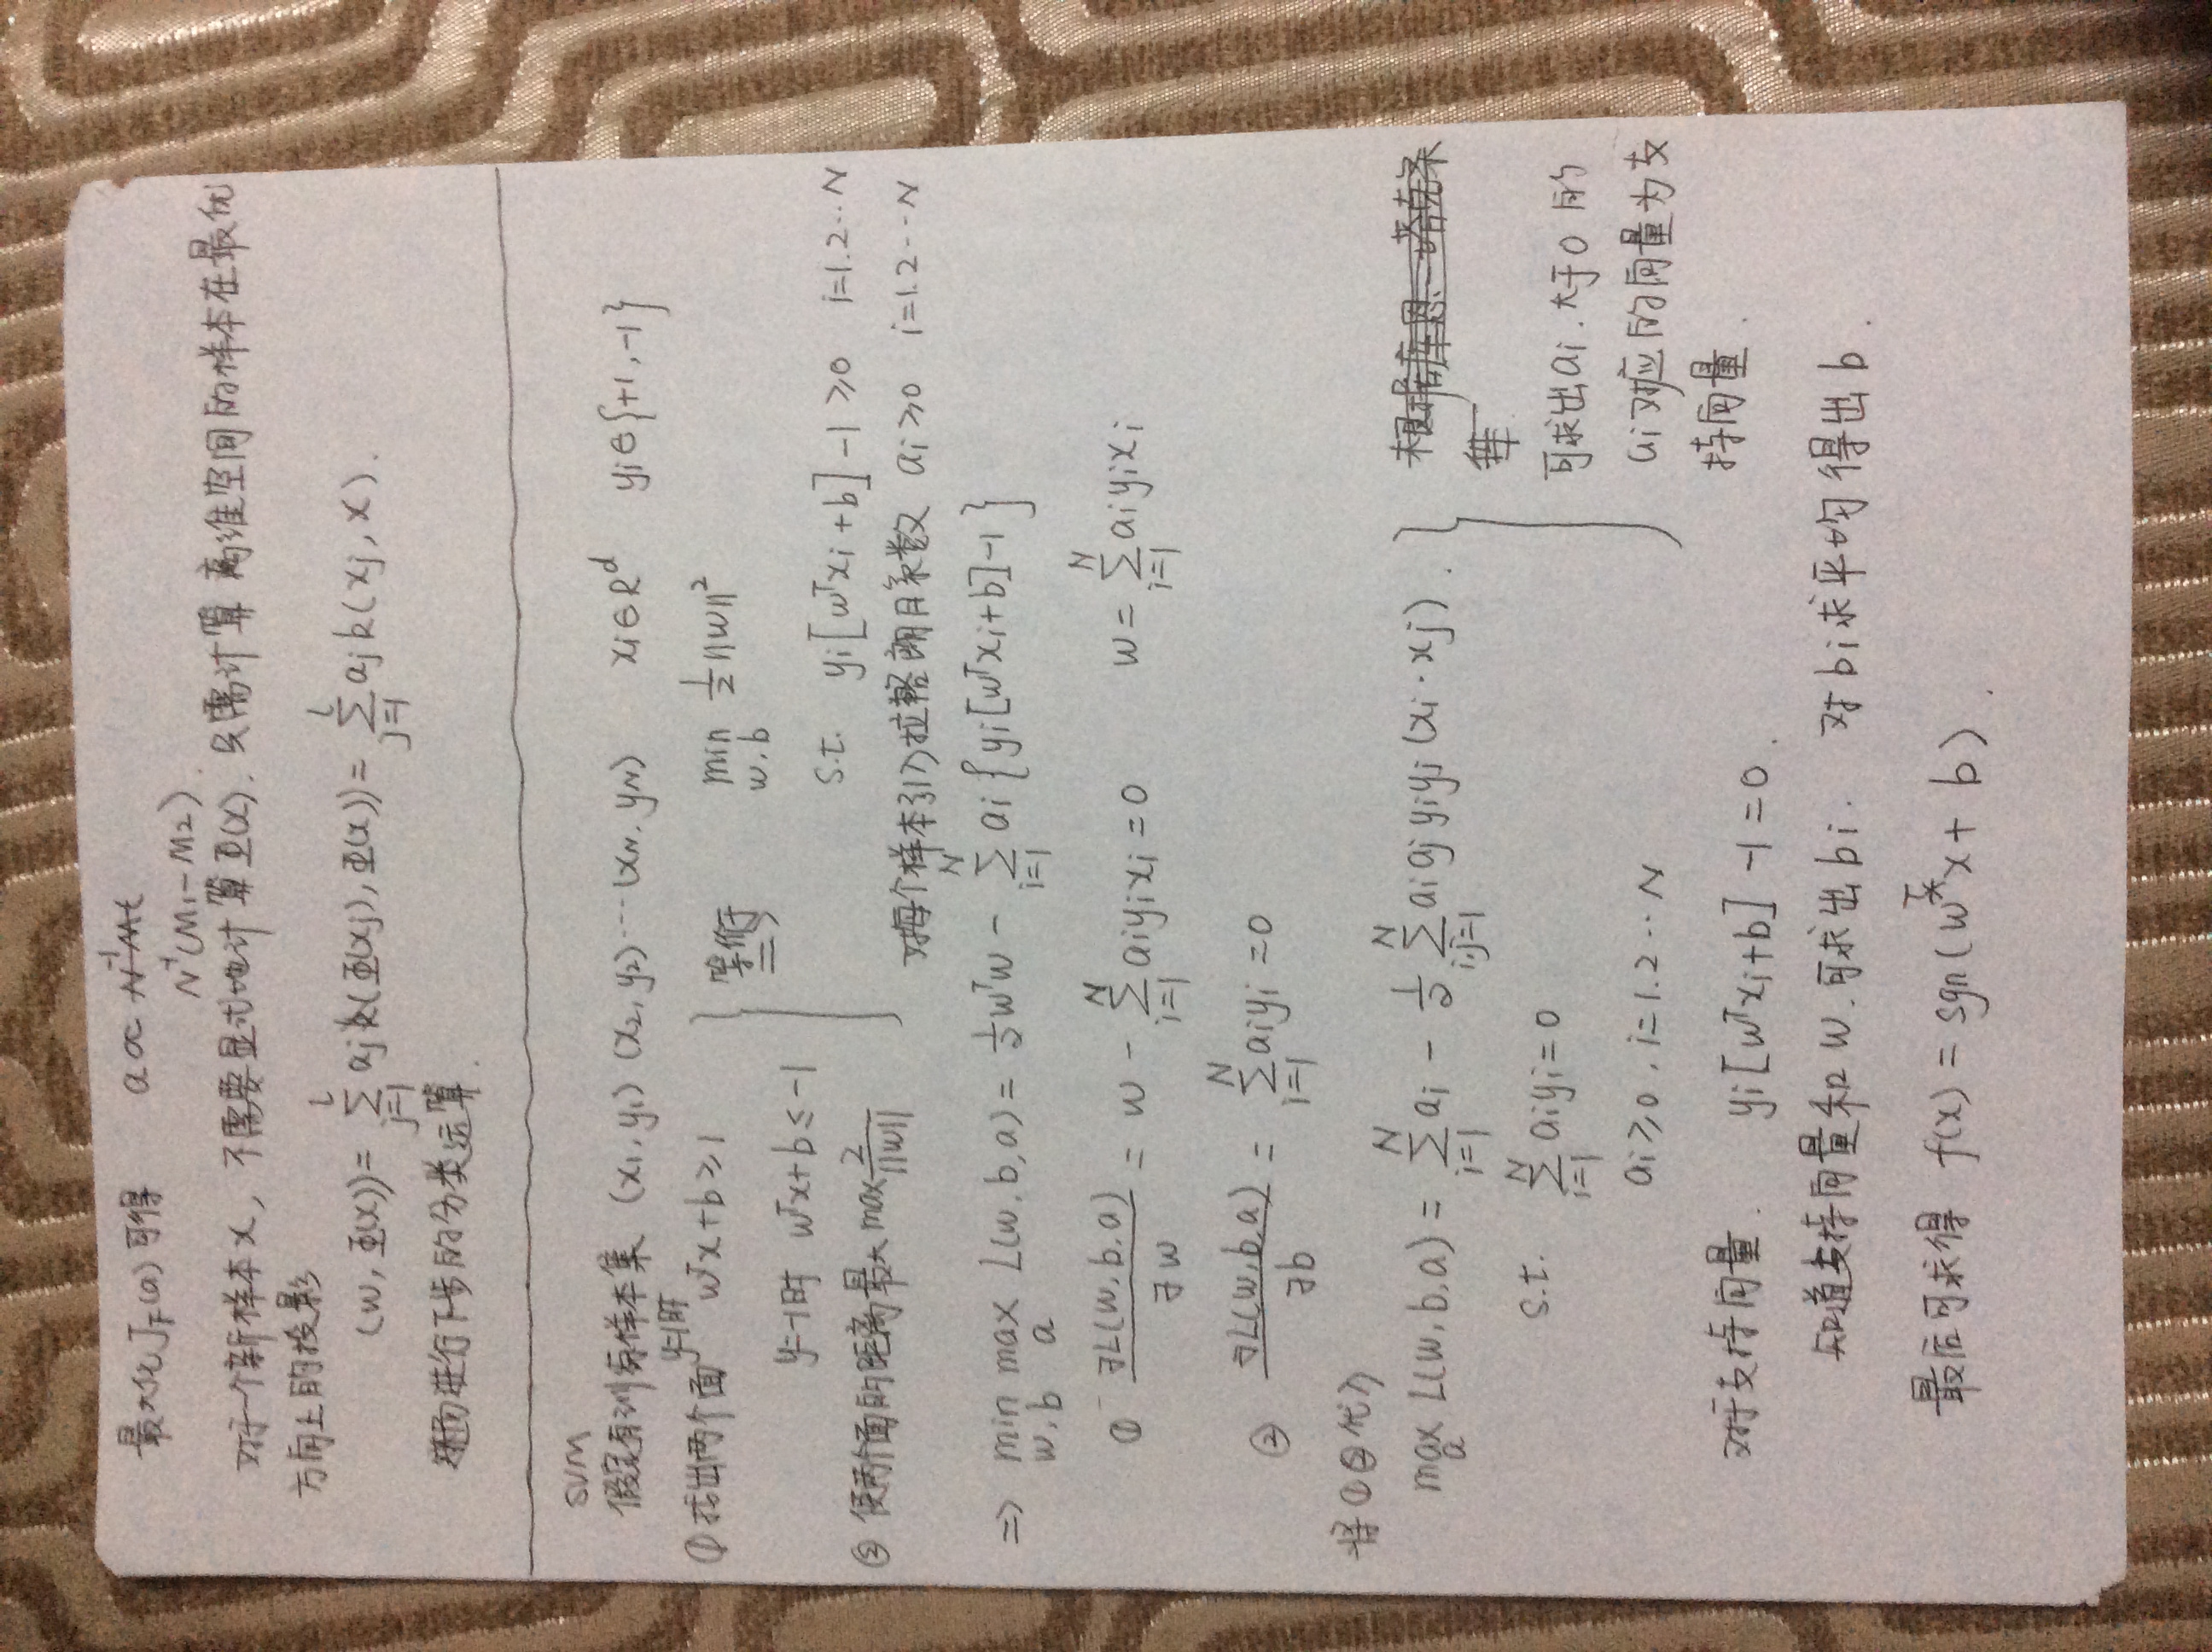 最大化J_F(a)可得 a ∝ N⁻¹M
N⁻¹(M₁-M₂)
对于一个新样本x，不需要显式地计算Φ(x)，只需计算高维空间的样本在最优
方向上的投影
(w,Φ(x))= Σ_{j=1}^{l} aj k(Φ(xj),Φ(x))= Σ_{j=1}^{l} aj k(xj,x).
进行下步的分类运算.
SVM
假定有训练样本集 (x₁,y₁)(x₂,y₂)···(x_N,y_N) xi∈R^d yi∈{+1,-1}
①找出两个面 y=1时 wᵀx+b≥1
y=-1时 wᵀx+b≤-1
②使两个面的距离最大 max 2/||w||
等价于
min_{w,b} ½||w||²
s.t. yi[wᵀxi+b]-1≥0 i=1.2··N
对每个样本引入拉格朗日系数 ai≥0 i=1.2··N
=> min_{w,b} max_a L(w,b,a)= ½wᵀw - Σ_{i=1}^{N} ai{yi[wᵀxi+b]-1}
① ∂L(w,b,a)/∂w = w - Σ_{i=1}^{N} aiyixi=0 w= Σ_{i=1}^{N} aiyixi
② ∂L(w,b,a)/∂b = Σ_{i=1}^{N} aiyi=0
将①②代入
max_a L(w,b,a)= Σ_{i=1}^{N} ai - ½ Σ_{i,j=1}^{N} aiajyiyj(xi·xj).
s.t. Σ_{i=1}^{N} aiyi=0
ai≥0,i=1.2··N
可求出ai.大于0的
ai对应的向量为支
持向量.
对于支持向量. yi[wᵀxi+b]-1=0.
知道支持向量和w.可求出bi. 对bi求平均得出b.
最后可求得 f(x)=sgn(w*ᵀx+b).